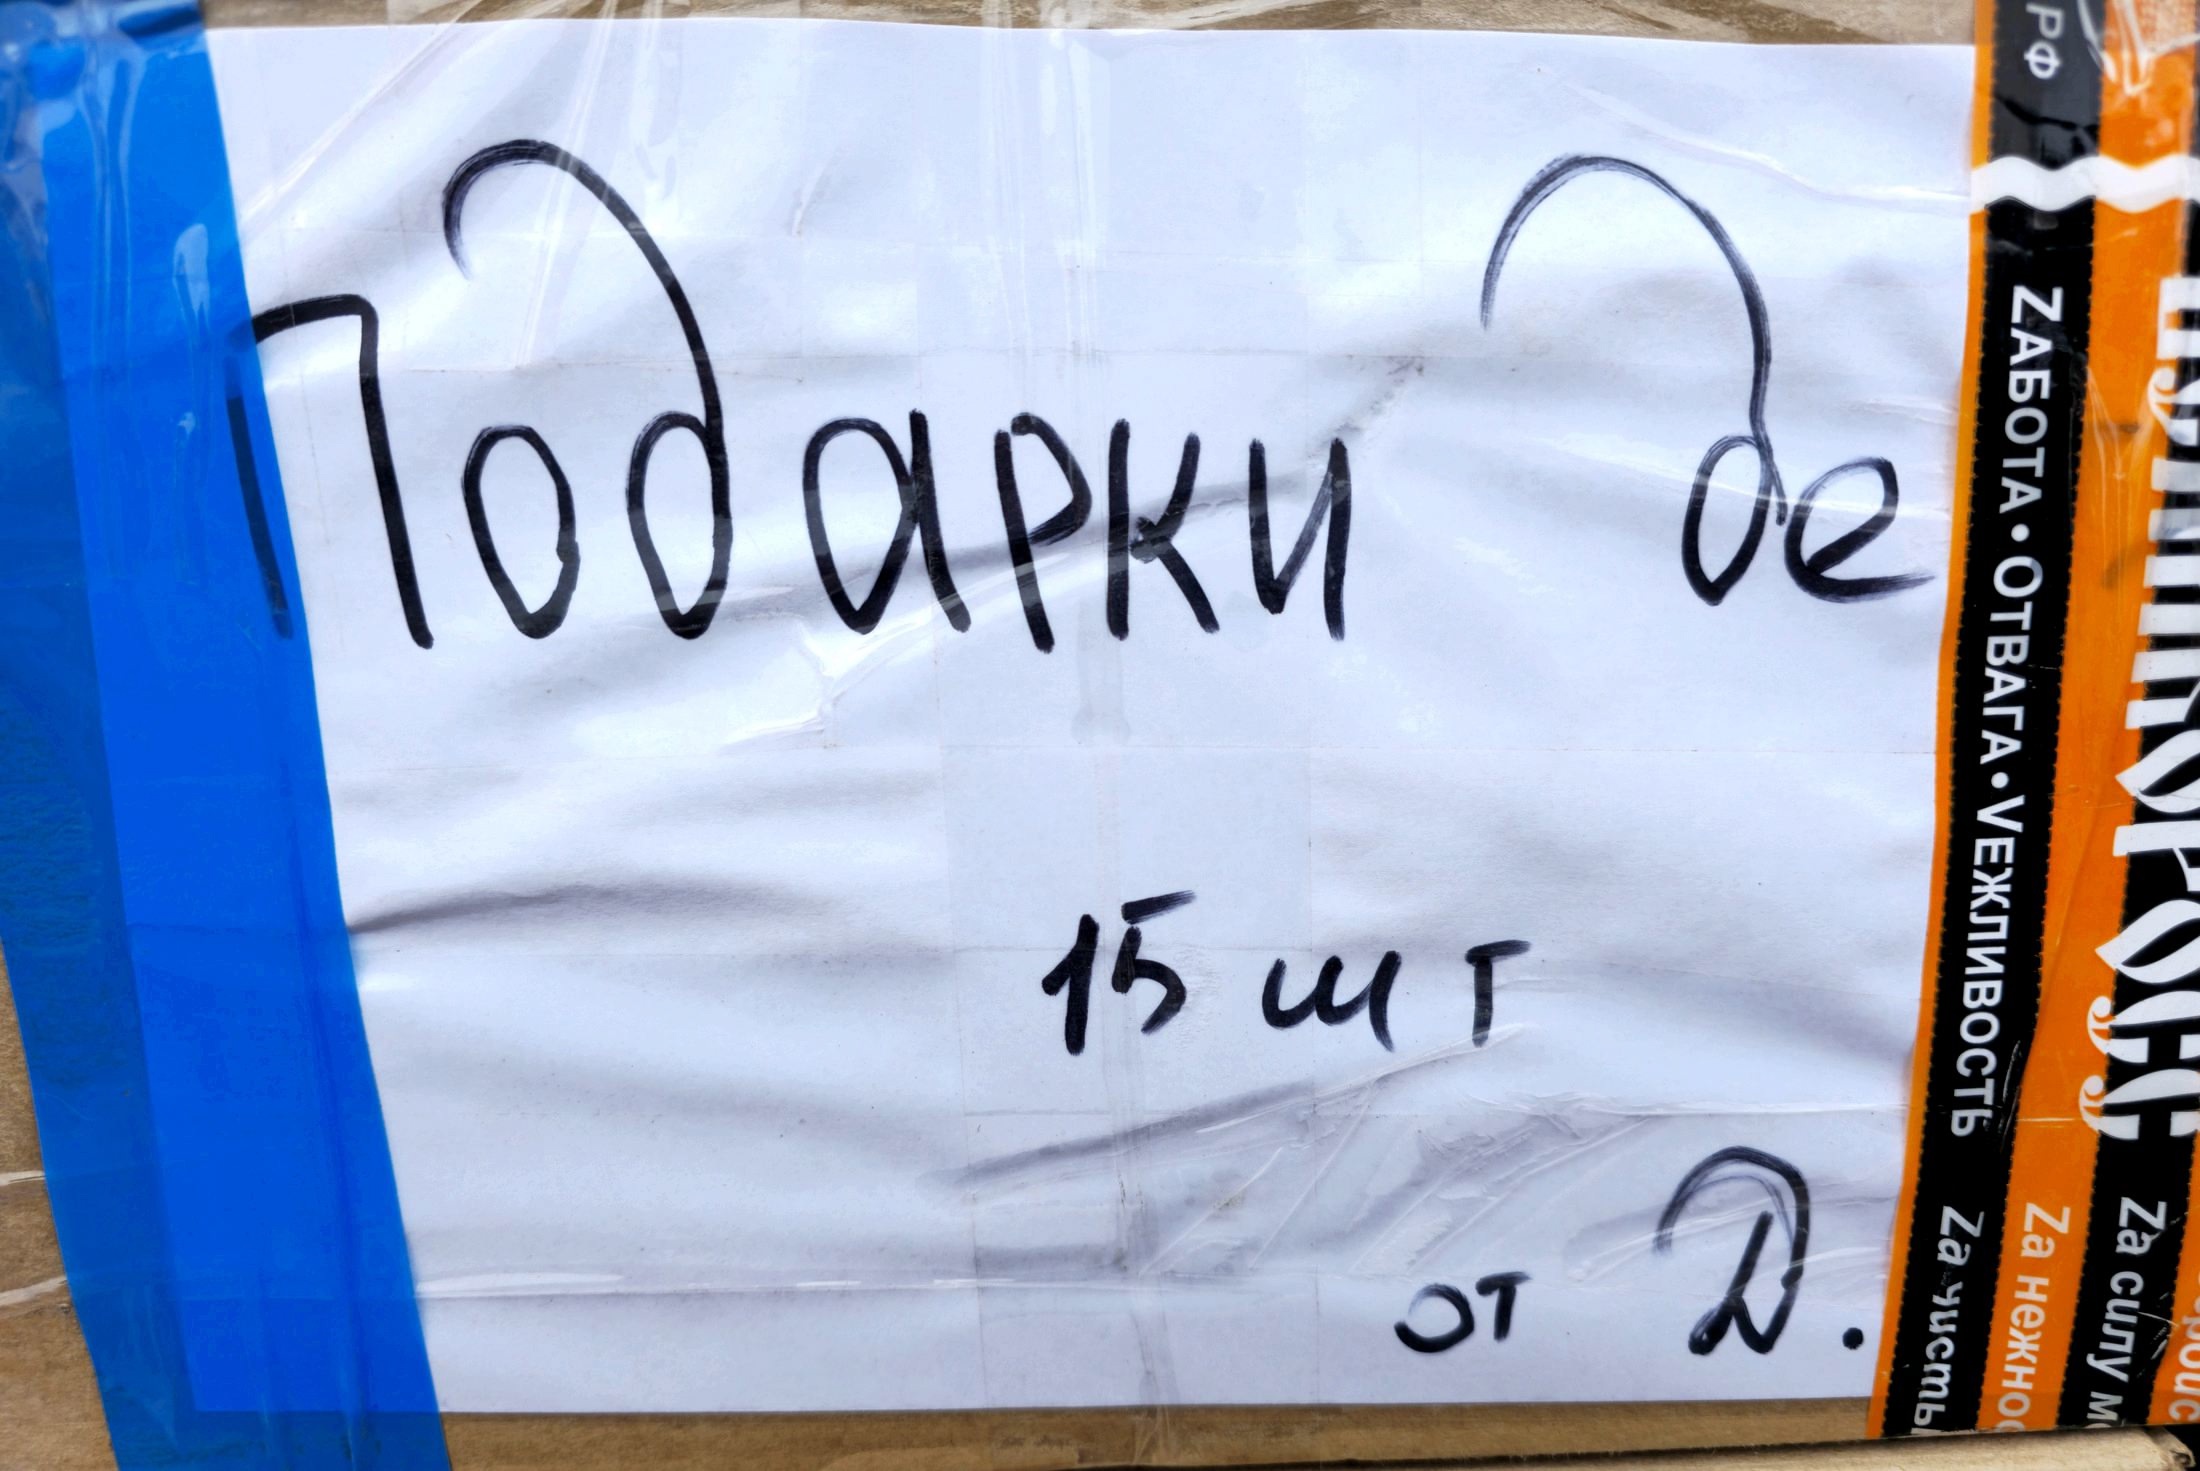 Подарки де
15 шт
от Д.
РФ
ZАБОТА • ОТВАГА • VЕЖЛИВОСТЬ
Zа нежно
Zа силу м